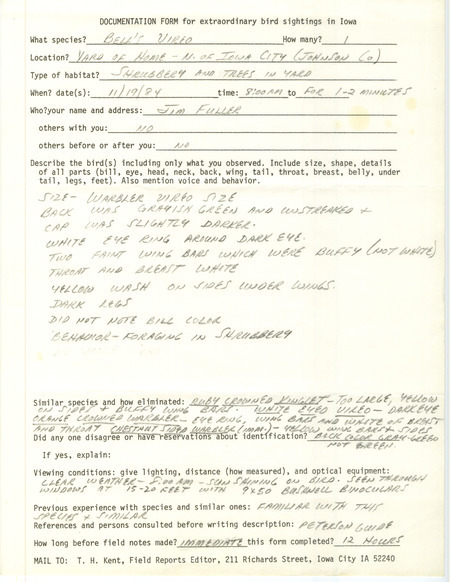 DOCUMENTATION FORM for extraordinary bird sightings in Iowa
What species? BELL'S VIREO How many? 1
Location? YARD OF HOME - N. OF IOWA CITY (JOHNSON CO)
Type of habitat? SHRUBBERY AND TREES IN YARD
When? date(s): 11/19/84 time: 8:00AM to FOR 1-2 MINUTES
Who?your name and address: JIM FULLER
others with you: NO
others before or after you: NO
Describe the bird(s) including only what you observed. Include size, shape, details
of all parts (bill, eye, head, neck, back, wing, tail, throat, breast, belly, under
tail, legs, feet). Also mention voice and behavior.
SIZE - WARBLER VIREO SIZE
BACK WAS GRAYISH GREEN AND UNSTREAKED &
CAP WAS SLIGHTLY DARKER.
WHITE EYE RING AROUND DARK EYE.
TWO FAINT WING BARS WHICH WERE BUFFY (NOT WHITE)
THROAT AND BREAST WHITE
YELLOW WASH ON SIDES UNDER WINGS.
DARK LEGS
DID NOT NOTE BILL COLOR
BEHAVIOR - FORAGING IN SHRUBBERY
Similar species and how eliminated: RUBY CROWNED KINGLET - TOO LARGE, YELLOW
ON SIDES & BUFFY WING BARS. WHITE EYED VIREO - DARK EYE
ORANGE CROWNED WARBLER - EYE RING, WING BARS AND WHITE OF BREAST
AND THROAT CHESTNUT SIDED WARBLER (imm.) - YELLOW WING BARS & SIDES
Did any one disagree or have reservations about identification? BACK COLOR GRAY-GREEN
NOT GREEN.
If yes, explain:
Viewing conditions: give lighting, distance (how measured), and optical equipment:
CLEAR WEATHER - 8:00 AM - SUN SHINING ON BIRD. SEEN THROUGH
WINDOWS AT 15-20 FEET WITH 9X50 BUSHNELL BINOCULARS
Previous experience with species and similar ones: FAMILIAR WITH THIS
SPECIES & SIMILAR
References and persons consulted before writing description: PETERSON GUIDE
How long before field notes made? IMMEDIATE this form completed? 12 HOURS
MAIL TO: T. H. Kent, Field Reports Editor, 211 Richards Street, Iowa City IA 52240